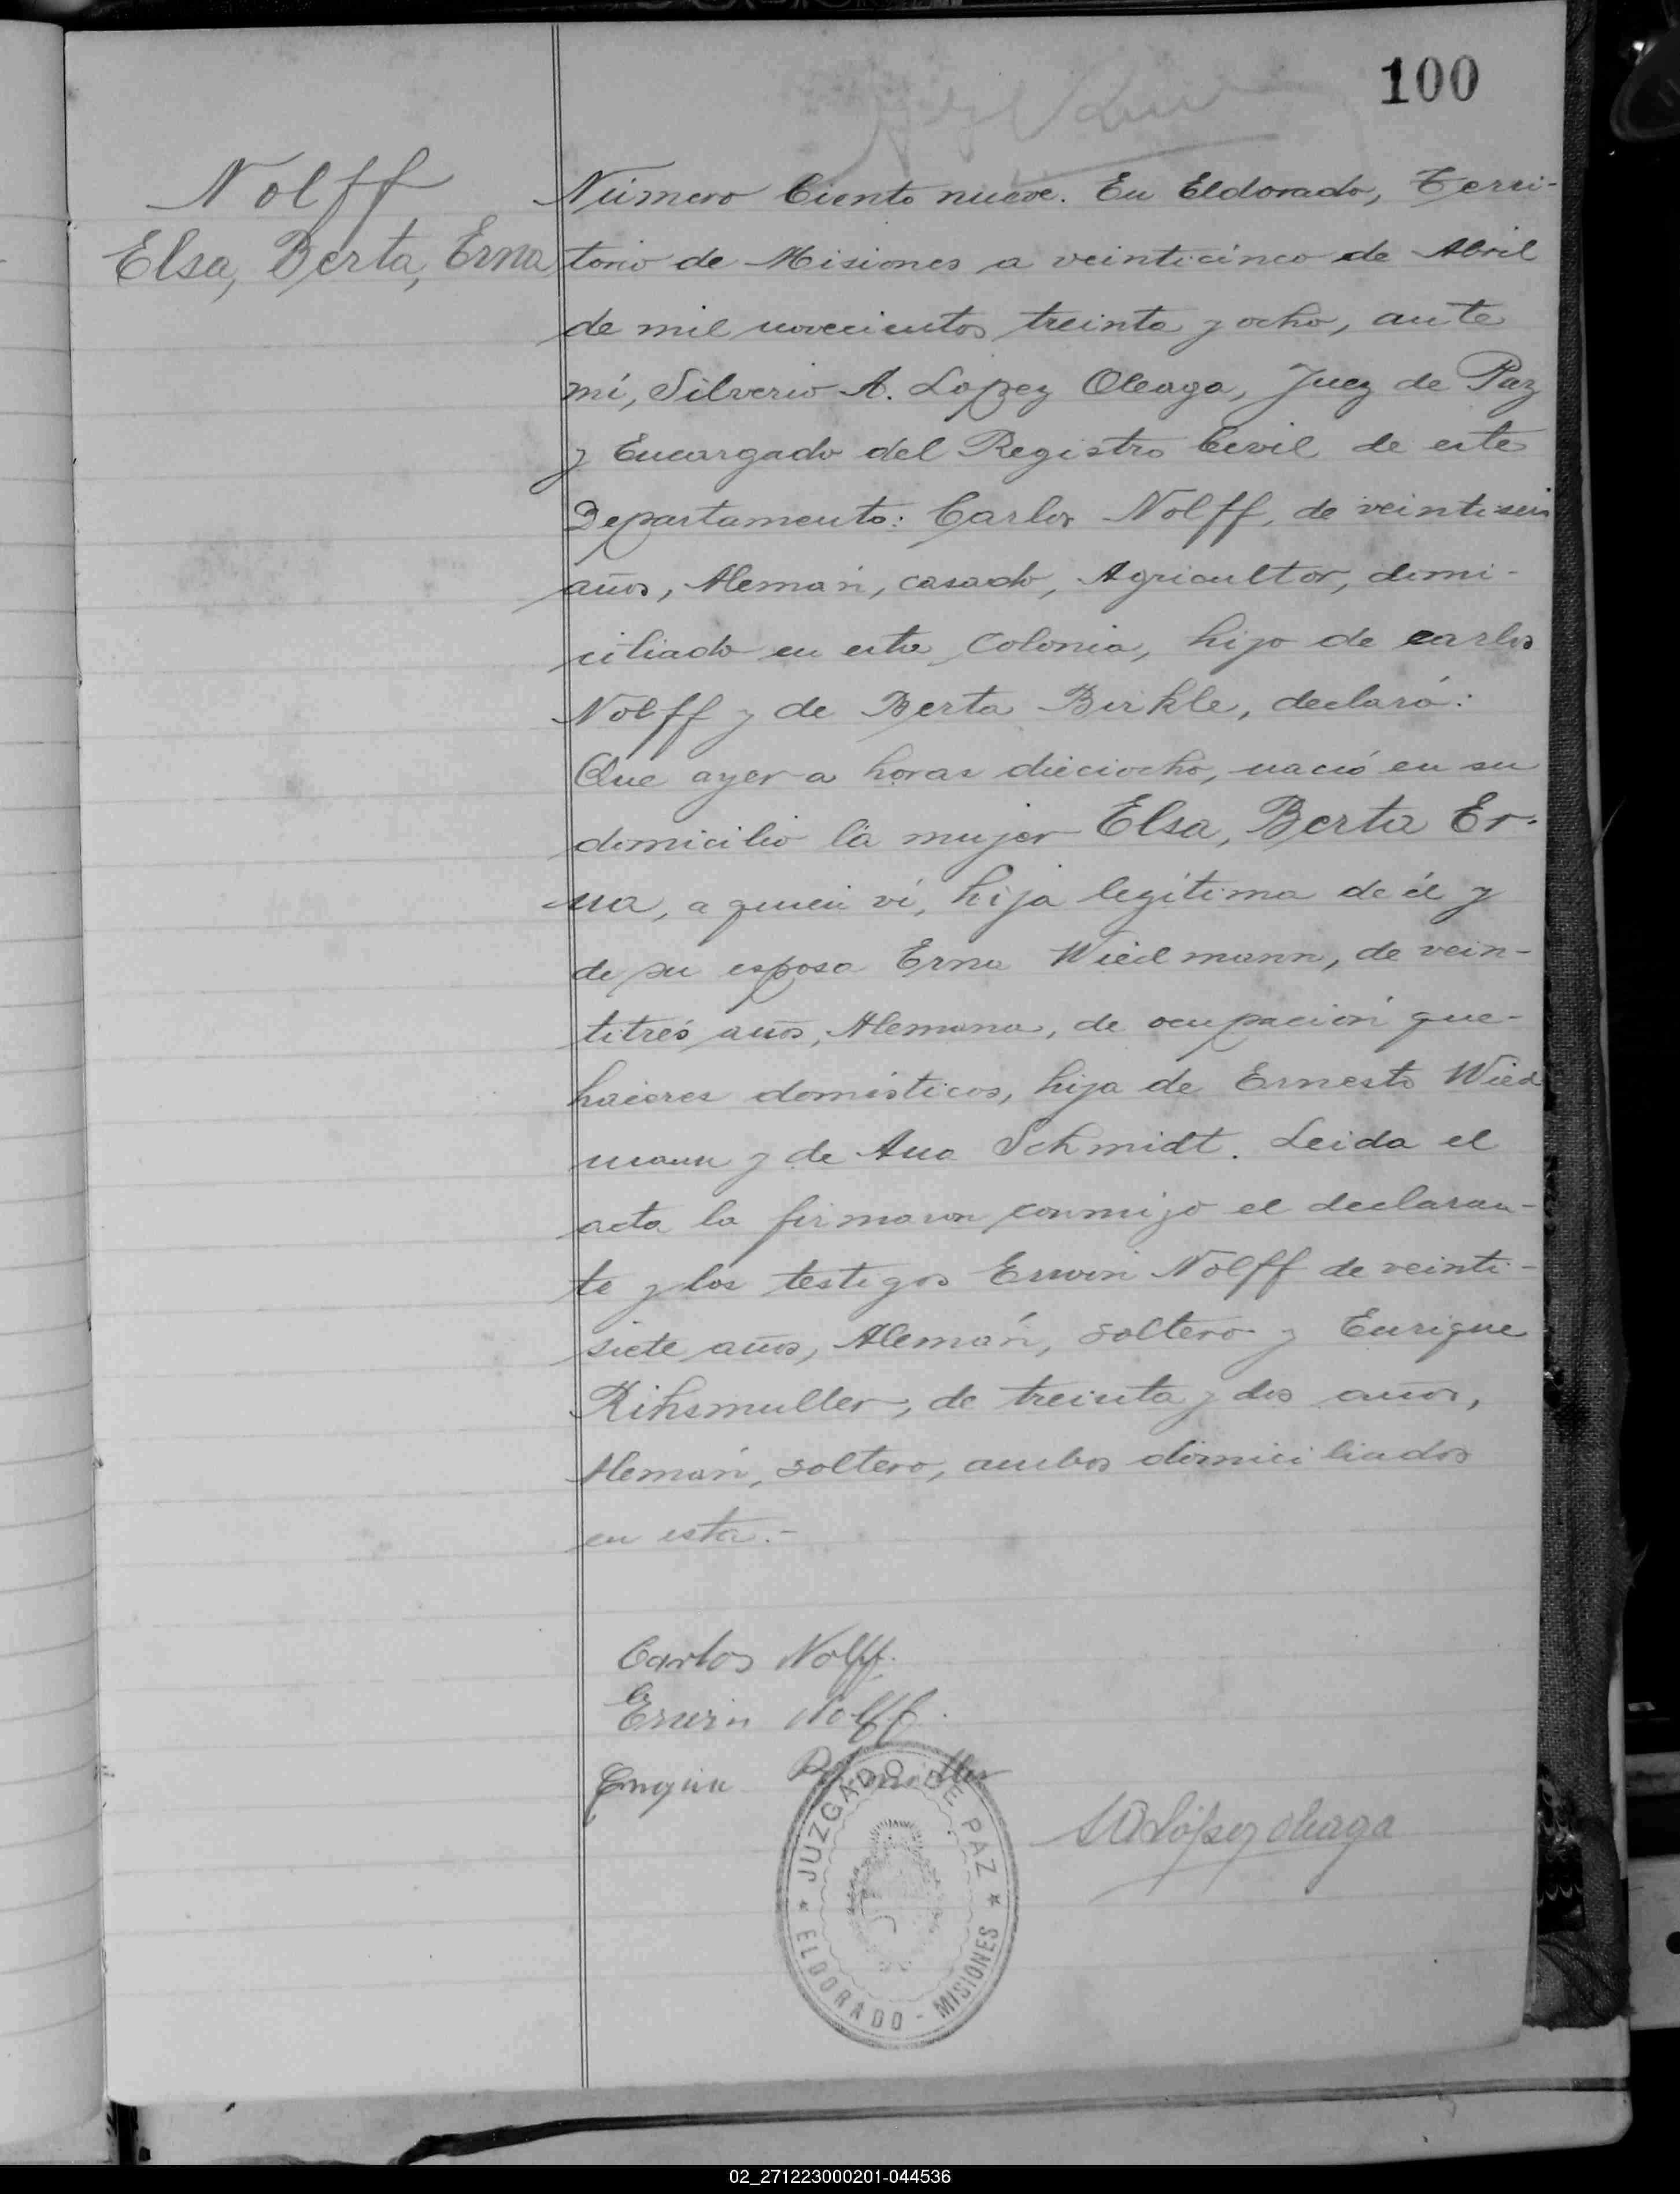 100
Nolff
Elsa, Berta, Erna
Número Ciento nueve. En Eldorado, Terri-
torio de Misiones a veinticinco de Abril
de mil novecientos treinta y ocho, ante
mí, Silverio A. Lopez Oleaga, Juez de Paz
y Encargado del Registro Civil de este
Departamento: Carlos Nolff, de veintiseis
años, Alemán, casado, Agricultor, domi-
ciliado en esta Colonia, hijo de Carlos
Nolff y de Berta Birkle, declaró:
Que ayer a horas dieciocho, nació en su
domicilio la mujer Elsa, Berta Er-
na, a quien ví, hija legítima de él y
de su esposa Erna Wiedmann, de vein-
titrés años, Alemana, de ocupación que-
haceres domésticos, hija de Ernesto Wied
mann y de Ana Schmidt. Leida el
acta la firmaron conmigo el declaran-
te y los testigos Erwin Nolff de veinti-
siete años, Alemán, soltero y Enrique
Rihsmuller, de treinta y dos años,
Alemán, soltero, ambos domiciliados
en esta.-
Carlos Nolff.
Erwin Nolff.
JUZGADO DE PAZ
ELDORADO - MISIONES
SALópez Oleaga
02_271223000201-044536